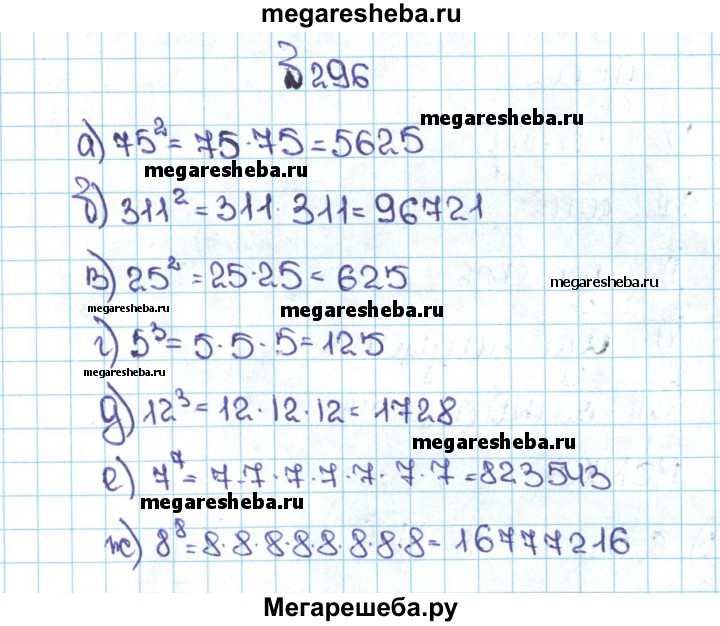 megaresheba.ru
296
megaresheba.ru
а) 75² = 75·75 = 5625
megaresheba.ru
б) 311² = 311·311 = 96721
в) 25² = 25·25 = 625
megaresheba.ru
megaresheba.ru
megaresheba.ru
г) 5³ = 5·5·5 = 125
megaresheba.ru
д) 12³ = 12·12·12 = 1728
megaresheba.ru
е) 7⁷ = 7·7·7·7·7·7·7 = 823543
megaresheba.ru
ж) 8⁸ = 8·8·8·8·8·8·8·8 = 16777216
Мегарешеба.ру